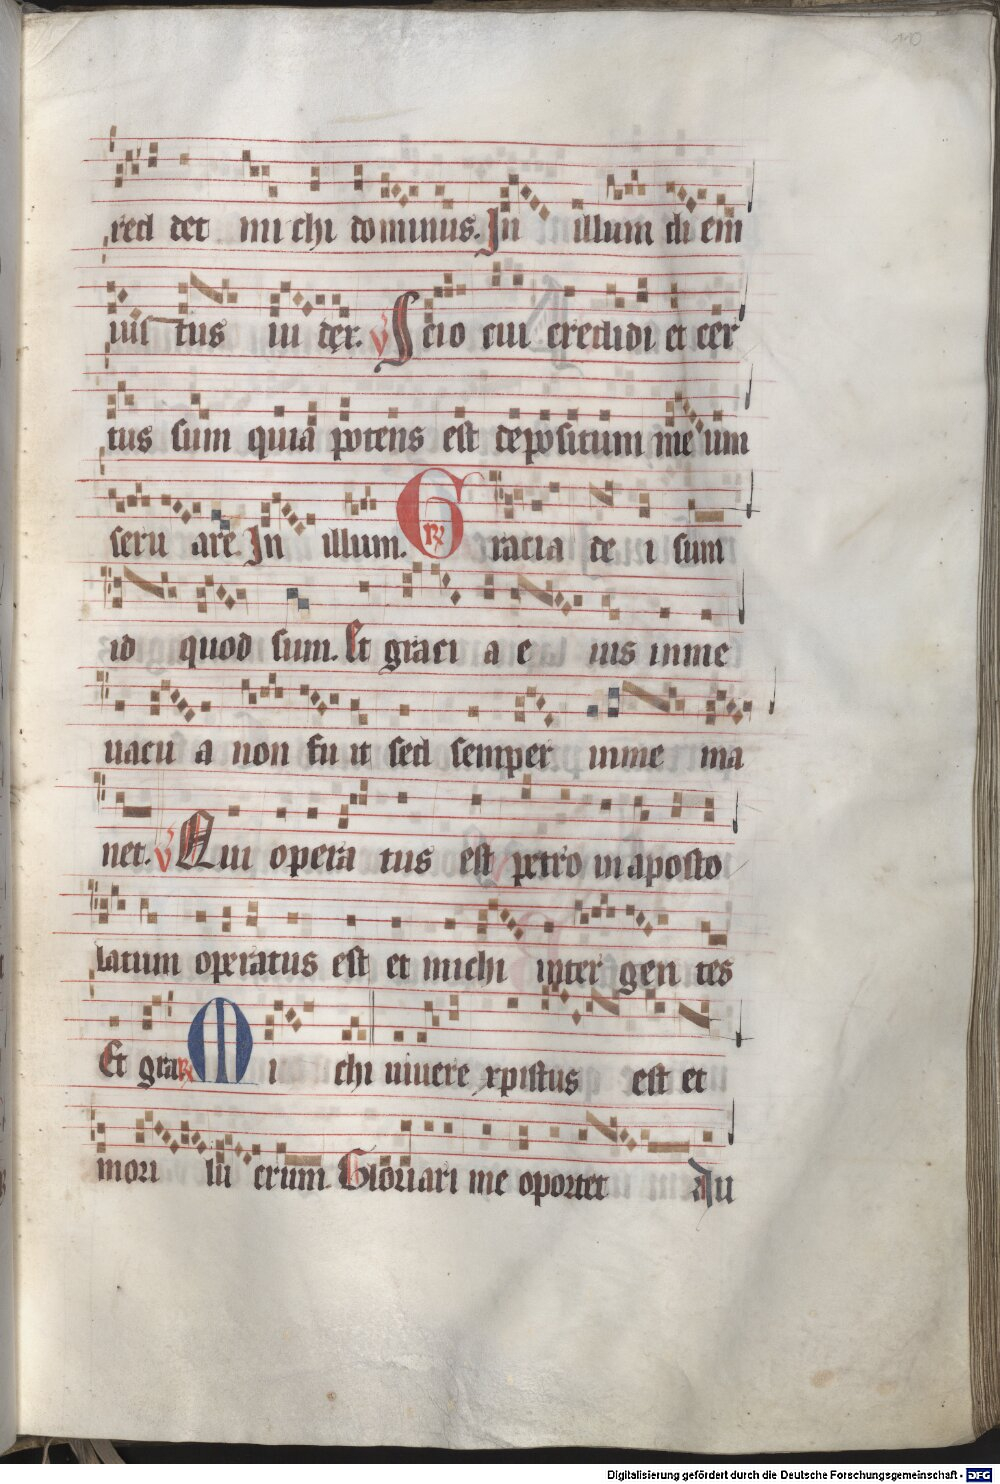 110
red det mi chi dominus. In illum di em
ius tus iu dex. V Scio cui credidi et cer
tus sum quia potens est depositum me um
seru are. In illum. R Gracia de i sum
id quod sum. Et graci a e ius in me
uacu a non fu it sed semper in me ma
net. V Qui opera tus est petro in aposto
latum operatus est et michi inter gen tes
Et gra R Mi chi uiuere xpistus est et
mori lu crum. Gloriari me oportet Au
Digitalisierung gefördert durch die Deutsche Forschungsgemeinschaft - DFG